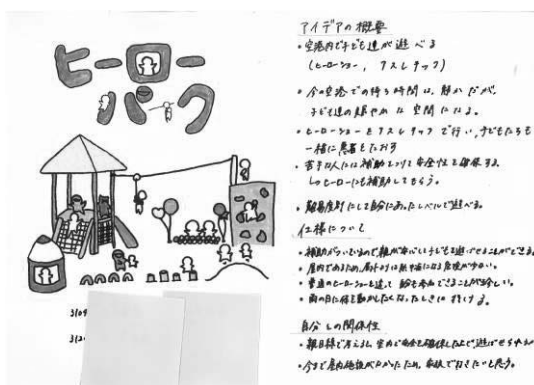 ヒーロー
パーク
アイデアの概要
・空港内で子ども達が遊べる
(ヒーローショー, アスレチック)
・今の空港での待ち時間は、静かだが、
子ども達の賑やかな空間になる。
・ヒーローショーをアスレチックで行い、子どもたちも
一緒に悪者をたおす
・苦手な人には補助をつけて安全性を確保する。
↳ヒーローにも補助してもらう。
・難易度別にして自分にあったレベルで遊べる。
仕様について
・補助がついているので親が安心して子どもを遊ばせることができる。
・屋内であるため、
・普通のヒーローショーと違って
・雨の日に体を動かしたくなったときに行ける。
自分との関係性
・親目線で考えると、室内で安全を確保した上で遊ばせられる
・今まで屋内施設が